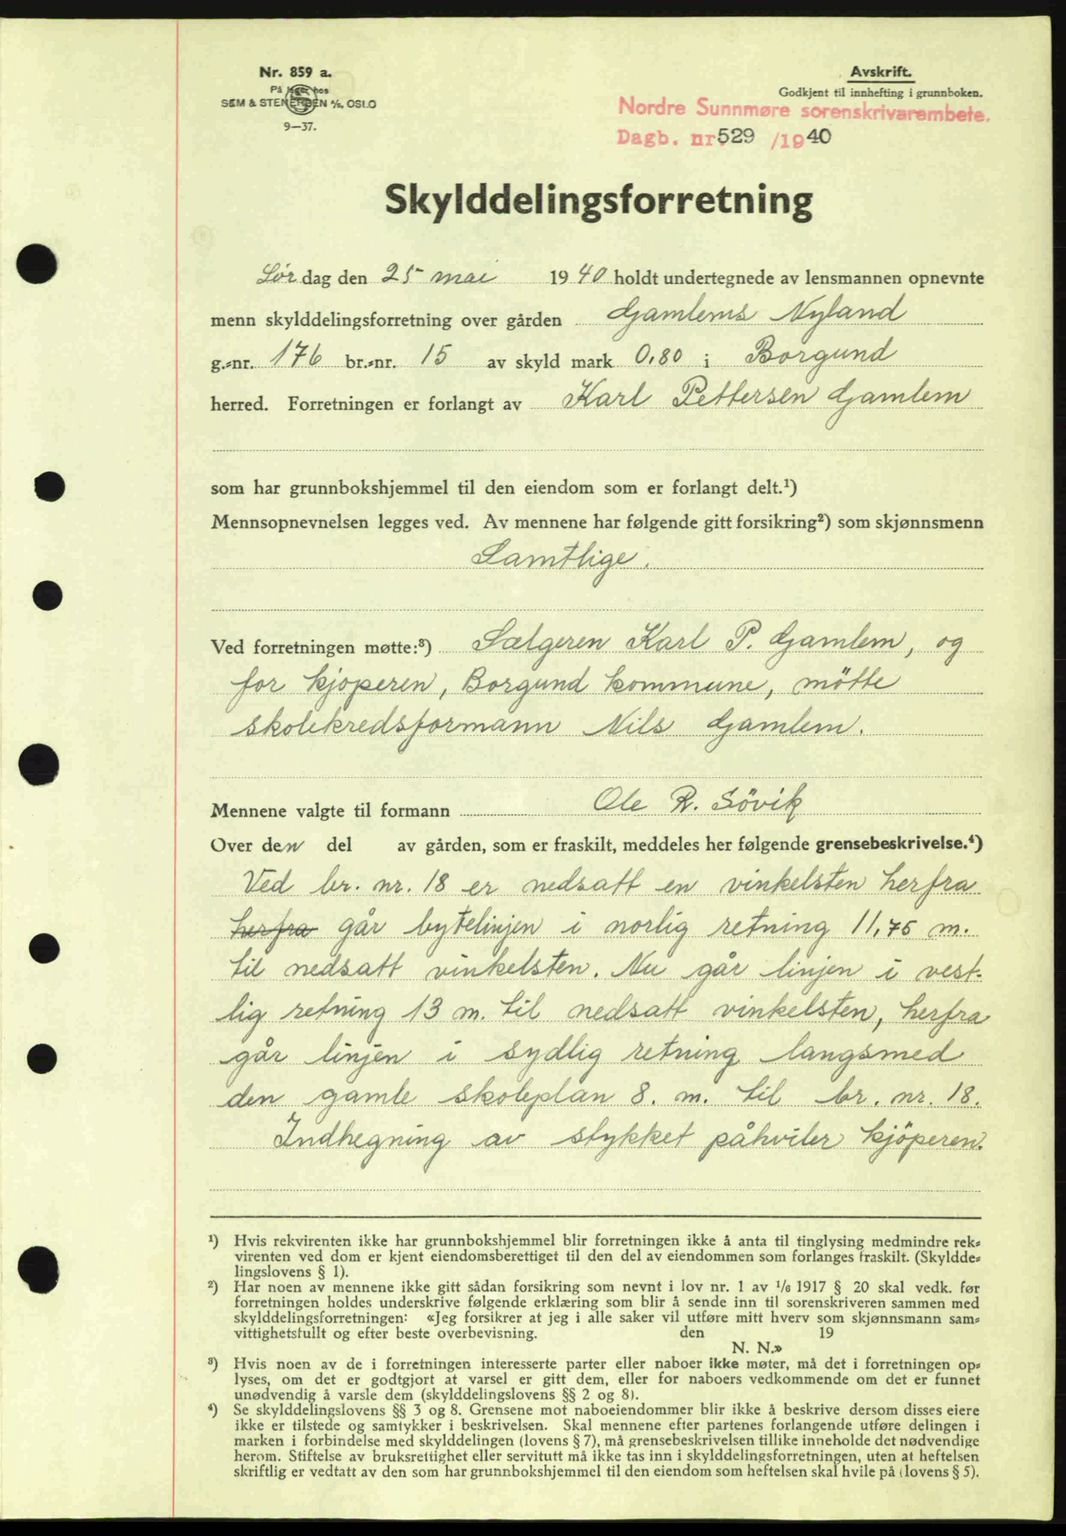 Nr. 859 a.
På lager hos
SEM & STENERSEN A/S, OSLO
9—37.
Avskrift.
Godkjent til innhefting i grunnboken.
Nordre Sunnmøre sorenskrivarembete.
Dagb. nr 529 /1940
Skylddelingsforretning
Lørdag den 25 mai 1940 holdt undertegnede av lensmannen opnevnte
menn skylddelingsforretning over gården Gamlems Nyland
g.-nr. 176 br.-nr. 15 av skyld mark 0,80 i Borgund
herred. Forretningen er forlangt av Karl Pettersen Gamlem
som har grunnbokshjemmel til den eiendom som er forlangt delt.¹)
Mennsopnevnelsen legges ved. Av mennene har følgende gitt forsikring²) som skjønnsmenn
Samtlige.
Ved forretningen møtte:³) Sælgeren Karl P. Gamlem, og
for kjøperen, Borgund kommune, mötte
skolekredsformann Nils Gamlem.
Mennene valgte til formann Ole R. Sövik
Over den del av gården, som er fraskilt, meddeles her følgende grensebeskrivelse.⁴)
Ved br. nr. 18 er nedsatt en vinkelsten herfra
herfra går bytelinjen i norlig retning 11,75 m.
til nedsatt vinkelsten. Nu går linjen i vest-
lig retning 13 m. til nedsatt vinkelsten, herfra
går linjen i sydlig retning langsmed
den gamle skoleplan 8. m. til br. nr. 18.
Indhegning av stykket påhviler kjöperen.
¹) Hvis rekvirenten ikke har grunnbokshjemmel blir forretningen ikke å anta til tinglysing medmindre rek-
virenten ved dom er kjent eiendomsberettiget til den del av eiendommen som forlanges fraskilt. (Skyldde-
lingslovens § 1).
²) Har noen av mennene ikke gitt sådan forsikring som nevnt i lov nr. 1 av 1/6 1917 § 20 skal vedk. før
forretningen holdes underskrive følgende erklæring som blir å sende inn til sorenskriveren sammen med
skylddelingsforretningen: «Jeg forsikrer at jeg i alle saker vil utføre mitt hverv som skjønnsmann sam-
vittighetsfullt og efter beste overbevisning. den 19
N. N.»
³) Hvis noen av de i forretningen interesserte parter eller naboer ikke møter, må det i forretningen op-
lyses, om det er godtgjort at varsel er gitt dem, eller for naboers vedkommende om det er funnet
unødvendig å varsle dem (skylddelingslovens §§ 2 og 8).
⁴) Se skylddelingslovens §§ 3 og 8. Grensene mot naboeiendommer blir ikke å beskrive dersom disses eiere
ikke er tilstede og samtykker i beskrivelsen. Skal mennene efter partenes forlangende utføre delingen i
marken i forbindelse med skylddelingen (lovens § 7), må grensebeskrivelsen tillike inneholde det nødvendige
herom. Stiftelse av bruksrettighet eller servitutt må ikke tas inn i skylddelingsforretningen, uten at heftelsen
skriftlig er vedtatt av den som har grunnbokshjemmel til den eiendom som heftelsen skal hvile på (lovens § 5).